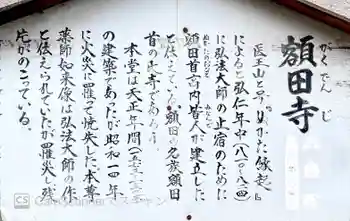 額田寺
がくでんじ
医王山と号しぬかた縁起に
よると弘仁年中(八一〇〜八二四)
に弘法大師の止宿のために
額田首宮内皆人が建立した
と伝えている。額田の名族額田
首の氏寺であろう。
本堂は天正年間(五七三〜
の建築であったが昭和二四年
に火災に罹って焼失した。本尊
薬師如来像は弘法大師の作
と伝られていたが罹災し残
片がのこっている。